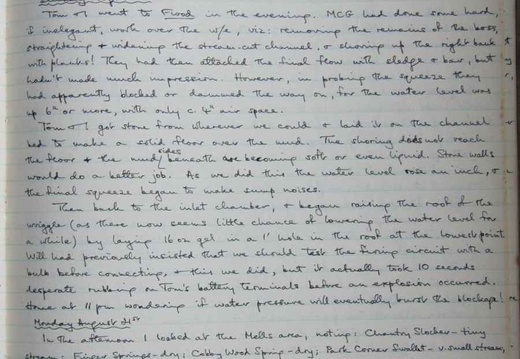 Tom & I went to Flood in the evening. MCG had done some hard,
if inelegant, work over the w/e, viz: removing the remains of the boss,
straightening & widening the stream-cut channel, & shoring up the right bank
with planks! They had then attacked the final flow with sledge & bar, but
hadn't made much impression. However, in probing the squeeze they
had apparently blocked or dammed the way on, for the water level was
up 6" or more, with only c. 4" air space.
Tom & I got stone from wherever we could & laid it on the channel
bed to make a solid floor over the mud. The shoring does not reach
the floor & the mud sides beneath are becoming soft or even liquid. Stone walls
would do a better job. As we did this the water level rose an inch, &
the final squeeze began to make sump noises.
Then back to the inlet chamber, & began raising the roof of the
wriggle (as there now seems little chance of lowering the water level for
a while) by laying 16 oz gel in a 1' hole in the roof at the lowest point.
Will had previously insisted that we should test the firing circuit with a
bulb before connecting, & this we did, but it actually took 10 seconds
desperate rubbing on Tom's battery terminals before an explosion occurred.
Home at 11 pm wondering if water pressure will eventually burst the blockage!
Monday August 21st
In the afternoon I looked at the Mells area, noting: Chantry Slocker - tiny
stream; Finger Springs - dry; Cobby Wood Spring - dry; Park Corner Swallet - v. small stream,